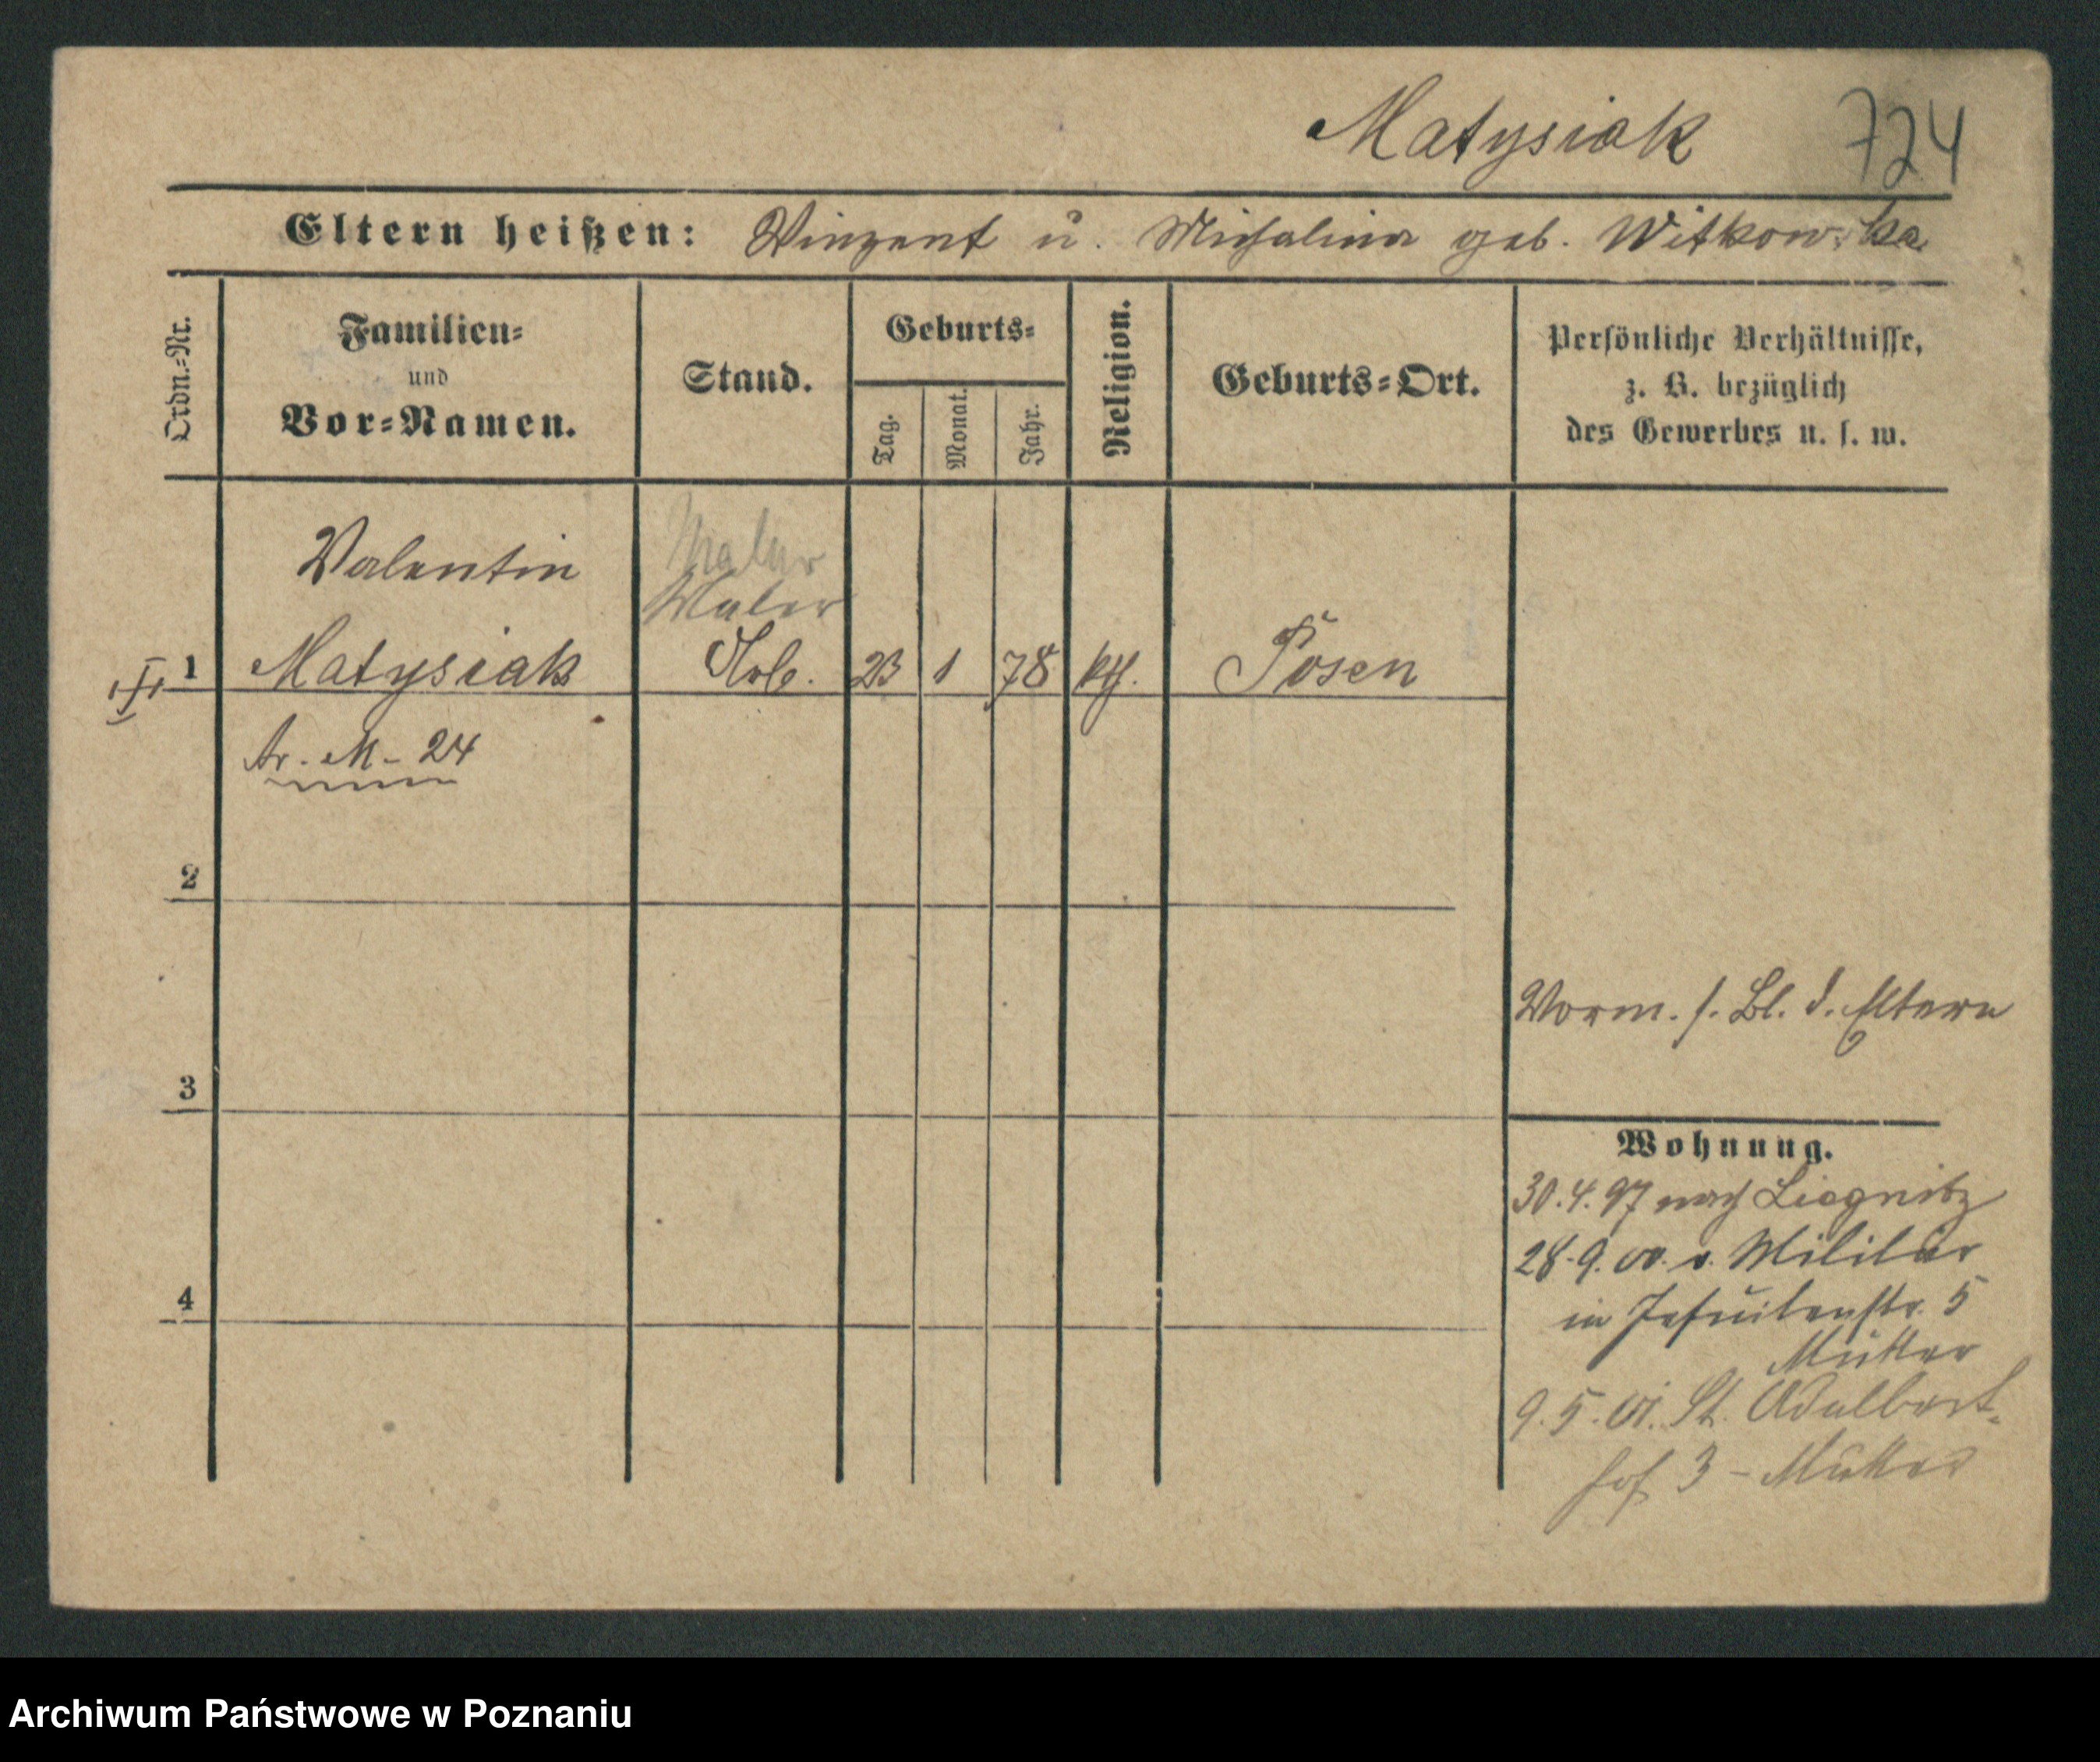 Matysiak 724
Eltern heißen: Vinzent u. Michalina geb. Witkowska
Ordn.-Nr.
Familien-
und
Vor-Namen.
Stand.
Geburts-
Tag.
Monat.
Jahr.
Religion.
Geburts-Ort.
Persönliche Verhältnisse,
z. B. bezüglich
des Gewerbes u. s. w.
Valentin
Maler
Maler
1 Matysiak Arb. 23 1 78 kth. Posen
Ar. M- 24
2
Vorm. s. Bl. d. Eltern
3
Wohnung.
30.4.97 nach Liegnitz
28.9.00. v. Militär
4
in Jesuitenstr. 5
Mutter
9.5.01. St. Adalbert-
hof 3 - Mutter
Archiwum Państwowe w Poznaniu